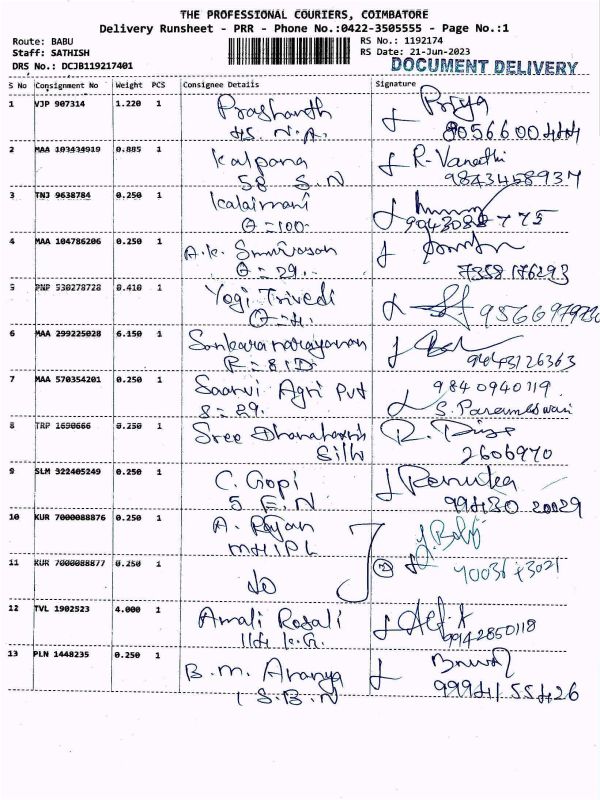 THE PROFESSIONAL COURIERS, COIMBATORE
Delivery Runsheet - PRR - Phone No.:0422-3505555 - Page No.:1
Route: BABU
RS No.: 1192174
Staff: SATHISH
RS Date: 21-Jun-2023
DRS No.: DCJB119217401
DOCUMENT DELIVERY
S No Consignment No Weight PCS Consignee Details Signature
1 VJP 907314 1.220 1 Prashanth Priya
45. N.A.
2 MAA 103434919 0.885 1 Kalpana R-Vanathi
58 S.N 9843458937
3 TNJ 9638784 0.250 1 Kalaimani
4 MAA 104786206 0.250 1 A.K. Srinivasan
7358176293
5 PNP 530278728 0.410 1 Yogi Trivedi
6 MAA 299225028 6.150 1 Sankaranarayanan
9443126363
7 MAA 570354201 0.250 1 Saarvi Agri Pvt 9840940119
S. Parameswari
8 TRP 1690666 0.250 1 Sree
Silk 2606970
9 SLM 322405249 0.250 1 C. Gopi Renuka
5 E.N 99430 20029
10 KUR 7000088876 0.250 1 A. Rajan
MHIPL
11 KUR 7000088877 0.250 1
12 TVL 1902523 4.000 1 Amali Rosali
114 K.G. 9942850118
13 PLN 1448235 0.250 1 B.M. Ananya
1 S.B.N 9994155426